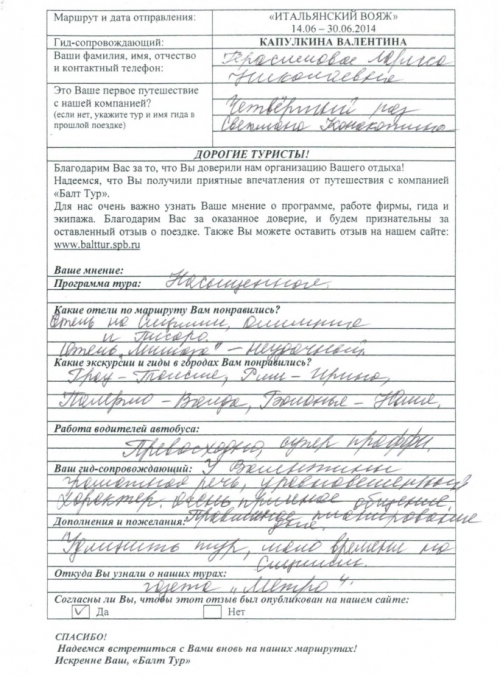 Маршрут и дата отправления: «ИТАЛЬЯНСКИЙ ВОЯЖ»
14.06 – 30.06.2014
Гид-сопровождающий: КАПУЛКИНА ВАЛЕНТИНА
Ваши фамилия, имя, отчество Герасимова Лариса
и контактный телефон: Николаевна
Это Ваше первое путешествие
с нашей компанией? Четвёртый раз
(если нет, укажите тур и имя гида в
прошлой поездке) Светлана
ДОРОГИЕ ТУРИСТЫ!
Благодарим Вас за то, что Вы доверили нам организацию Вашего отдыха!
Надеемся, что Вы получили приятные впечатления от путешествия с компанией
«Балт Тур».
Для нас очень важно узнать Ваше мнение о программе, работе фирмы, гида и
экипажа. Благодарим Вас за оказанное доверие, и будем признательны за
оставленный отзыв о поездке. Также Вы можете оставить отзыв на нашем сайте:
www.balttur.spb.ru
Ваше мнение:
Программа тура: Насыщенная.
Какие отели по маршруту Вам понравились?
Отель на Сицилии,
и
Отель – неудачный.
Какие экскурсии и гиды в городах Вам понравились?
Грац – Рим – Ирина,
Палермо – Ванда, Болонье –
Работа водителей автобуса:
Превосходно, супер профи.
Ваш гид-сопровождающий: У Валентины
грамотная речь, уравновешенный
характер, очень приятное общение.
Дополнения и пожелания: Правильное планирование
дня.
Удлинить тур, мало времени на
Сицилии.
Откуда Вы узнали о наших турах:
газета „Метро“.
Согласны ли Вы, чтобы этот отзыв был опубликован на нашем сайте:
✓ Да Нет
СПАСИБО!
Надеемся встретиться с Вами вновь на наших маршрутах!
Искренне Ваш, «Балт Тур»